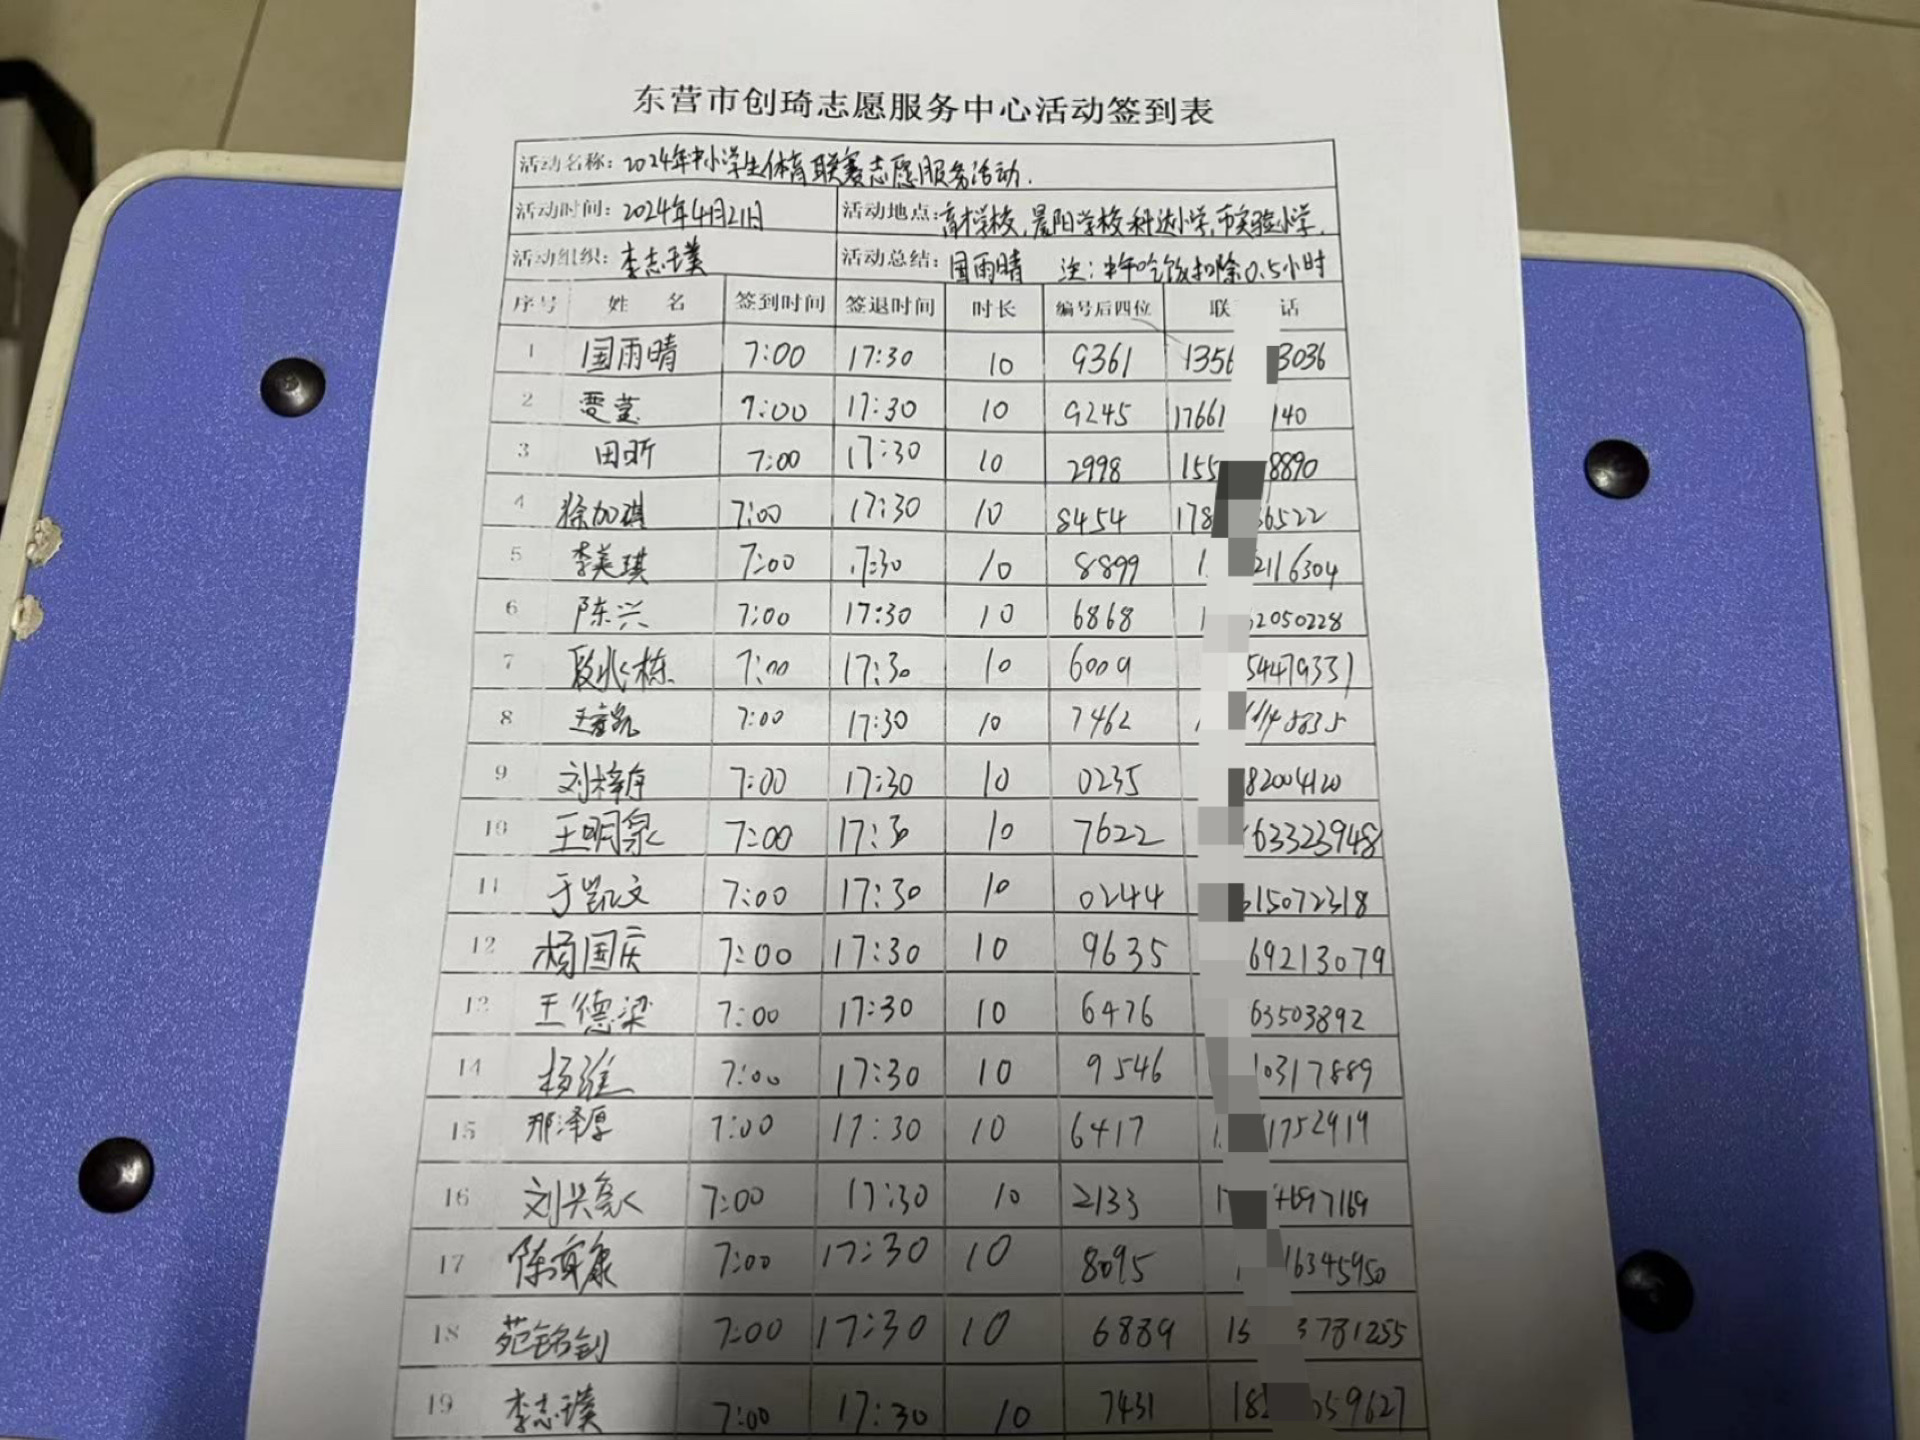 东营市创琦志愿服务中心活动签到表
活动名称：2024年中小学生体育联赛志愿服务活动.
活动时间：2024年4月21日 活动地点：育才学校,晨阳学校,科达小学,市实验小学.
活动组织：李志璞 活动总结：国雨晴 注：中午吃饭扣除0.5小时
序号 姓 名 签到时间 签退时间 时长 编号后四位 联 话
1 国雨晴 7:00 17:30 10 9361 1356 3036
2 7:00 17:30 10 9245 17661 140
3 田昕 7:00 17:30 10 2998 155 8890
4 徐加琪 7:00 17:30 10 8454 178 6522
5 李美琪 7:00 17:30 10 8899 1 2116304
6 陈兴 7:00 17:30 10 6868 1 2050228
7 段兆栋 7:00 17:30 10 6009 54479331
8 7:00 17:30 10 7462 8835
9 刘梓存 7:00 17:30 10 0235 82004120
10 王明泉 7:00 17:30 10 7622 63323948
11 于凯文 7:00 17:30 10 0244 615072318
12 杨国庆 7:00 17:30 10 9635 69213079
13 王德梁 7:00 17:30 10 6476 63503892
14 杨 7:00 17:30 10 9546 10317889
15 那泽厚 7:00 17:30 10 6417 1 1752919
16 刘兴亮 7:00 17:30 10 2133 1 697169
17 陈 康 7:00 17:30 10 8095 1 16345950
18 苑铭钊 7:00 17:30 10 6889 15 3781255
19 李志璞 7:00 17:30 10 7431 18 059627